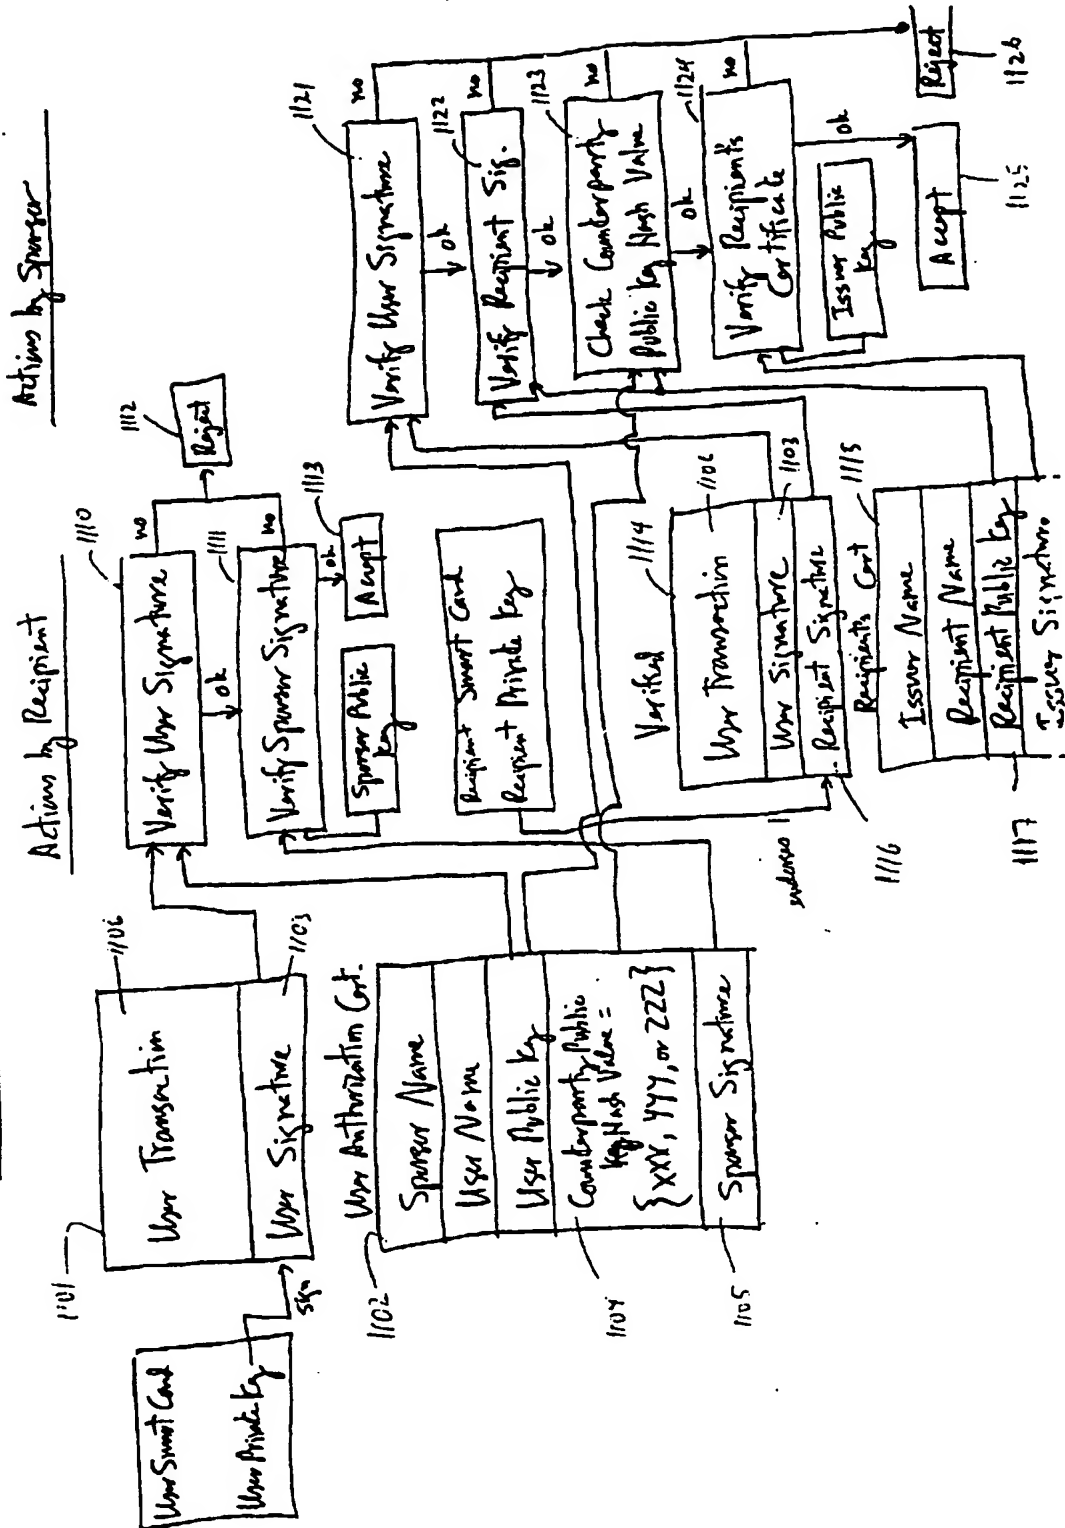 User Smart Card
User Private Key
sign
1101
User Transaction
1106
User Signature
1103
User Authorization Cert.
1102
Sponsor Name
User Name
User Public Key
Counterparty Public
Key Hash Value =
{XXX, YYY, or ZZZ}
1104
Sponsor Signature
1105
Actions by Recipient
Verify User Signature
1110
no
ok
Verify Sponsor Signature
1111
no
ok
Reject
1112
Accept
1113
Sponsor Public
Key
Recipient Smart Card
Recipient Private Key
Verified
1114
User Transaction
1106
User Signature
1103
Recipient Signature
endorses
1116
Recipients Cert
1115
Issuer Name
Recipient Name
Recipient Public Key
Issuer Signature
1117
Actions by Sponsor
Verify User Signature
1121
no
ok
Verify Recipient Sig.
1122
no
ok
Check Counterparty
Public Key Hash Value
1123
no
ok
Verify Recipient's
Certificate
1124
no
ok
Issuer Public
Key
Accept
1125
Reject
1126